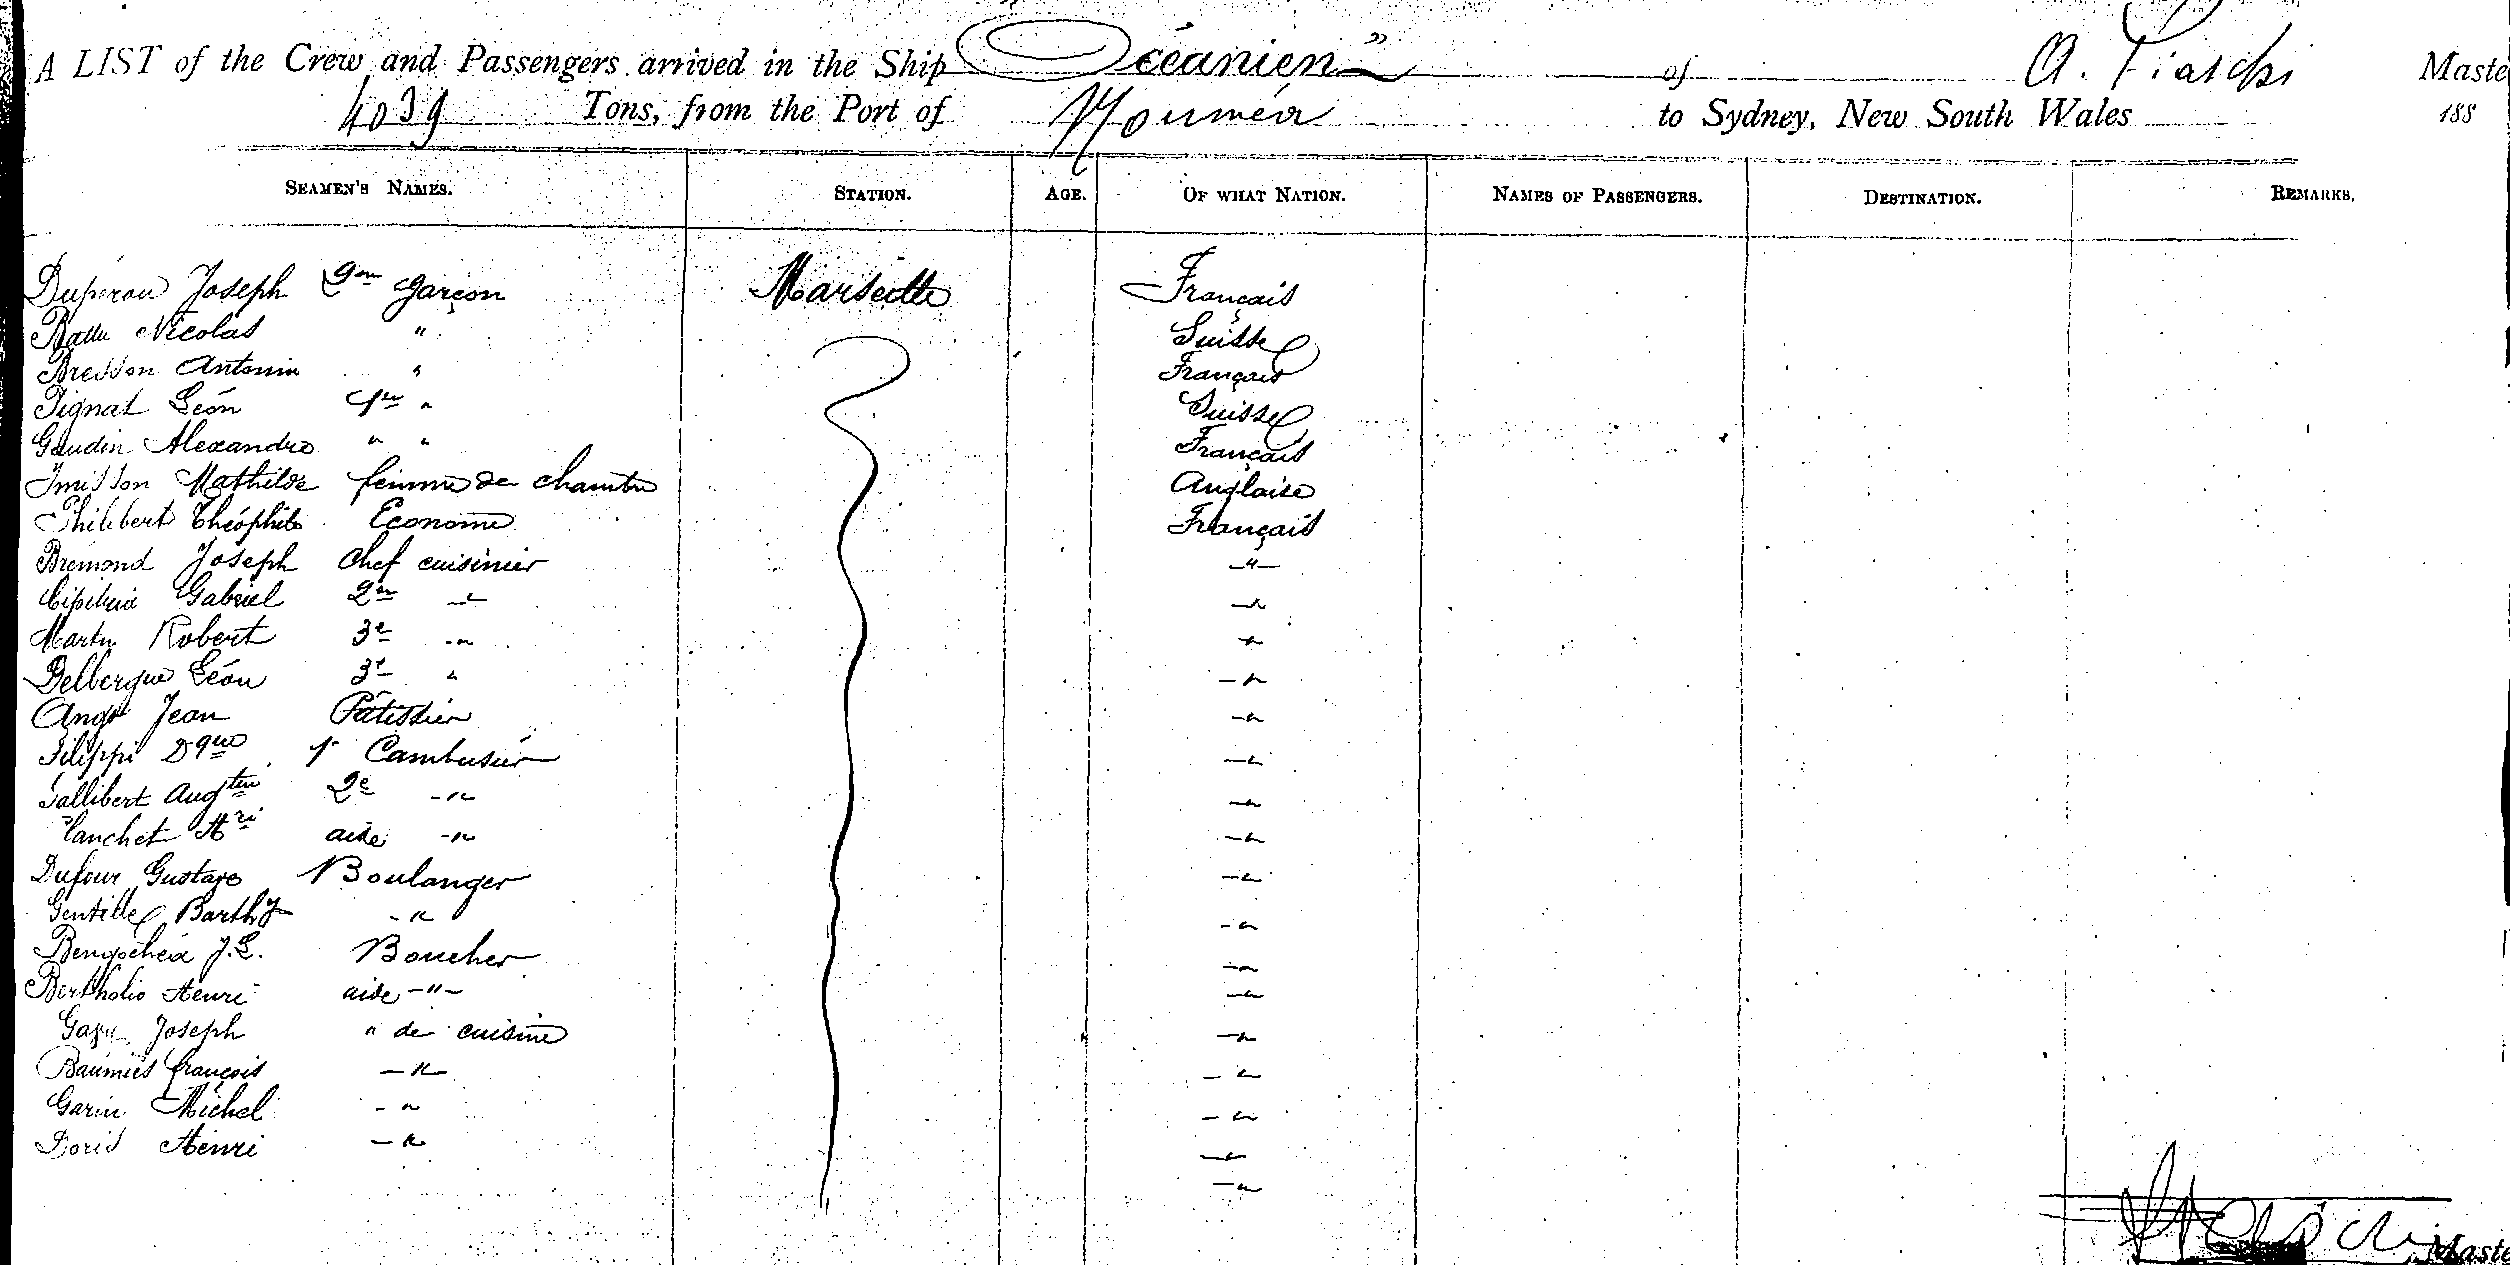 A LIST of the Crew and Passengers arrived in the Ship "Océanien" of A. Master
4039 Tons, from the Port of Nouméa to Sydney, New South Wales 188
SEAMEN'S NAMES. STATION. AGE. OF WHAT NATION. NAMES OF PASSENGERS. DESTINATION. REMARKS.
Duperou Joseph garçon Marseille Français
Nicolas " Suisse
Bresson Antonin " Français
Pignat Léon " Suisse
Gaudin Alexandre " " Français
Imisson Mathilde femme de chambre Anglaise
Philibert Théophile Econome Français
Bremond Joseph Chef cuisinier -"-
Gabriel 2me -"- -"-
Martin Robert 3e -"- -"-
Delbergue Léon 3e " -"-
Ange Jean Pâtissier -"-
Filippi Dque 1r Cambusier -"-
Gallibert Augtin 2e -"- -"-
Hri aide -"- -"-
Dufour Gustave Boulanger -"-
Gentille Barthy -"- -"-
Bengochea J.L. Boucher -"-
Bertholio Henri aide -"- -"-
Joseph " de cuisine -"-
Baumies François -"- -"-
Garin Michel -"- -"-
Doris Henri -"- -"-
-"-
Master